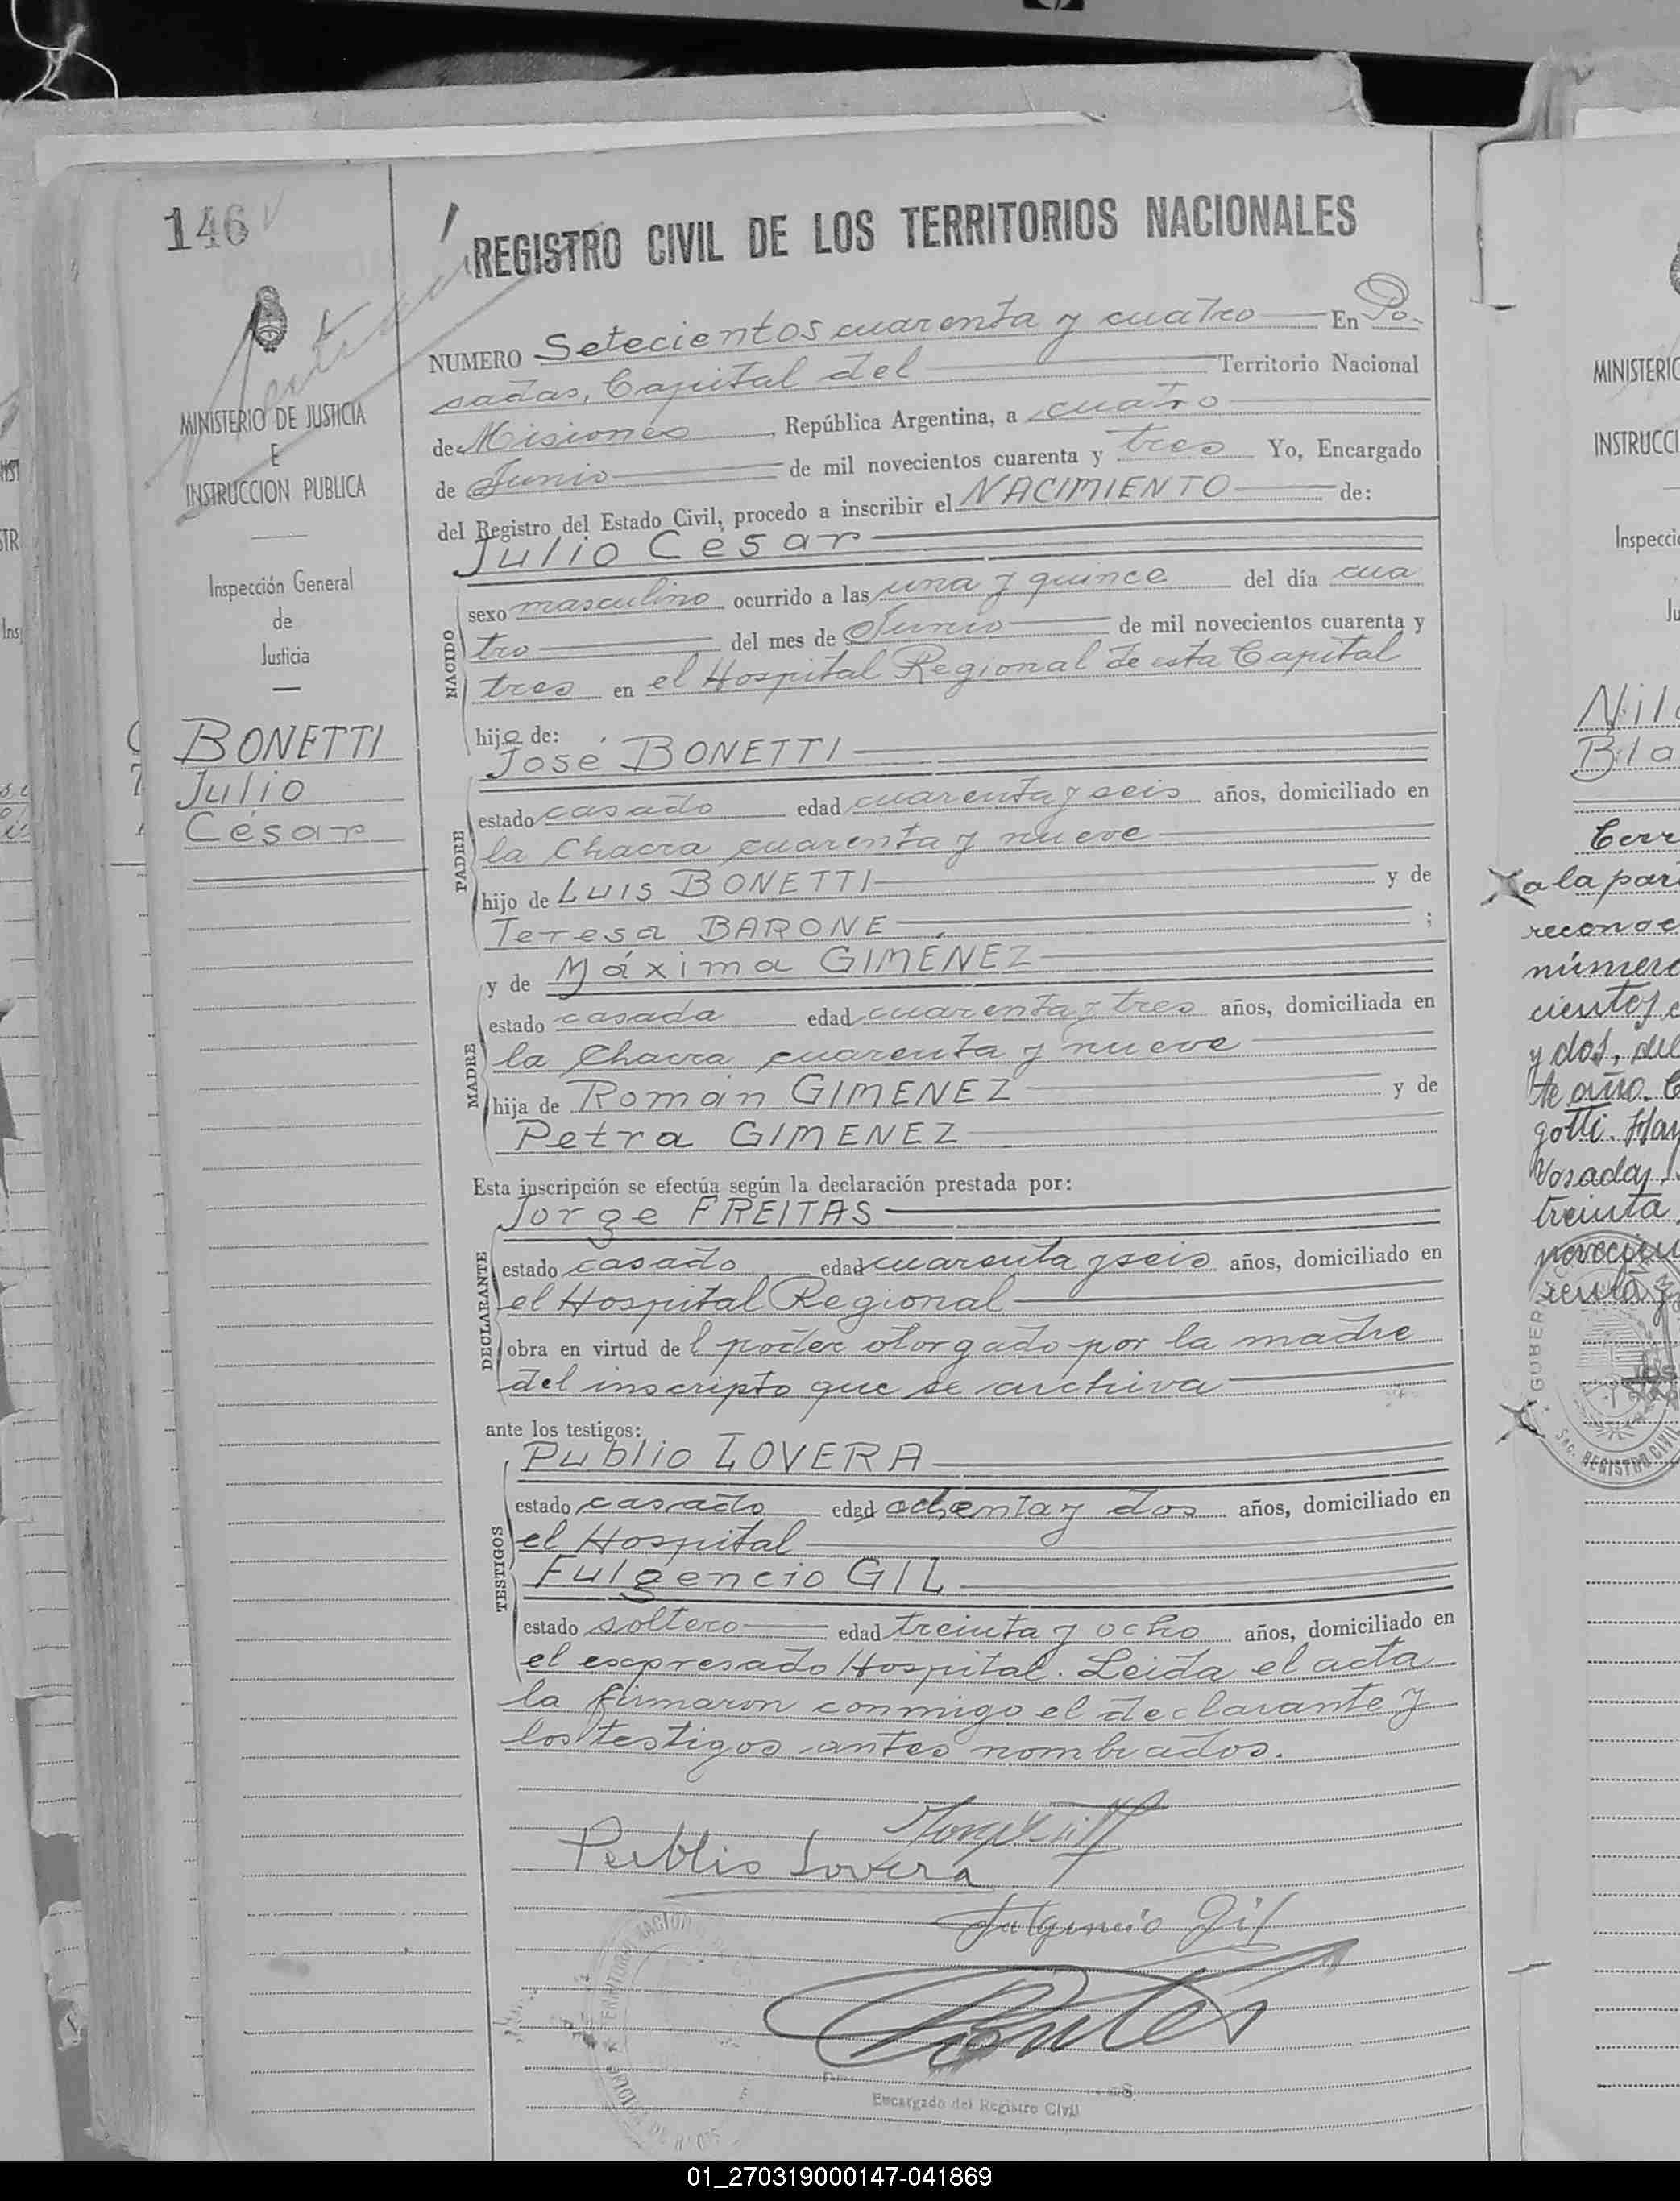 146
REGISTRO CIVIL DE LOS TERRITORIOS NACIONALES
MINISTERIO DE JUSTICIA
E
INSTRUCCION PUBLICA
Inspección General
de
Justicia
BONETTI
Julio
César
NUMERO Setecientos cuarenta y cuatro En Po-
sadas, Capital del Territorio Nacional
de Misiones, República Argentina, a cuatro
de Junio de mil novecientos cuarenta y tres Yo, Encargado
del Registro del Estado Civil, procedo a inscribir el NACIMIENTO de:
Julio Cesar
NACIDO
sexo masculino ocurrido a las una y quince del día cua
tro del mes de Junio de mil novecientos cuarenta y
tres en el Hospital Regional de esta Capital
hijo de:
José BONETTI
PADRE
estado casado edad cuarenta y seis años, domiciliado en
la Chacra cuarenta y nueve
hijo de Luis BONETTI y de
Teresa BARONE ;
y de Máxima GIMÉNEZ
MADRE
estado casada edad cuarenta y tres años, domiciliada en
la Chacra cuarenta y nueve
hija de Román GIMENEZ y de
Petra GIMENEZ
Esta inscripción se efectúa según la declaración prestada por:
Jorge FREITAS
DECLARANTE
estado casado edad cuarenta y seis años, domiciliado en
el Hospital Regional
obra en virtud del poder otorgado por la madre
del inscripto que se archiva
ante los testigos:
Publio LOVERA
TESTIGOS
estado casado edad ochenta y dos años, domiciliado en
el Hospital
Fulgencio GIL
estado soltero edad treinta y ocho años, domiciliado en
el expresado Hospital. Leida el acta
la firmaron conmigo el declarante y
los testigos antes nombrados.
Publio Lovera
Fulgencio Gil
Encargado del Registro Civil
MINISTERIO
INSTRUCCI
Inspecci
Ju
Nil
Bla
a la par
reconoc
número
cientos
y dos, del
te año.
gotti.
Posadas,
treinta
REGISTRO CIVIL
01_270319000147-041869